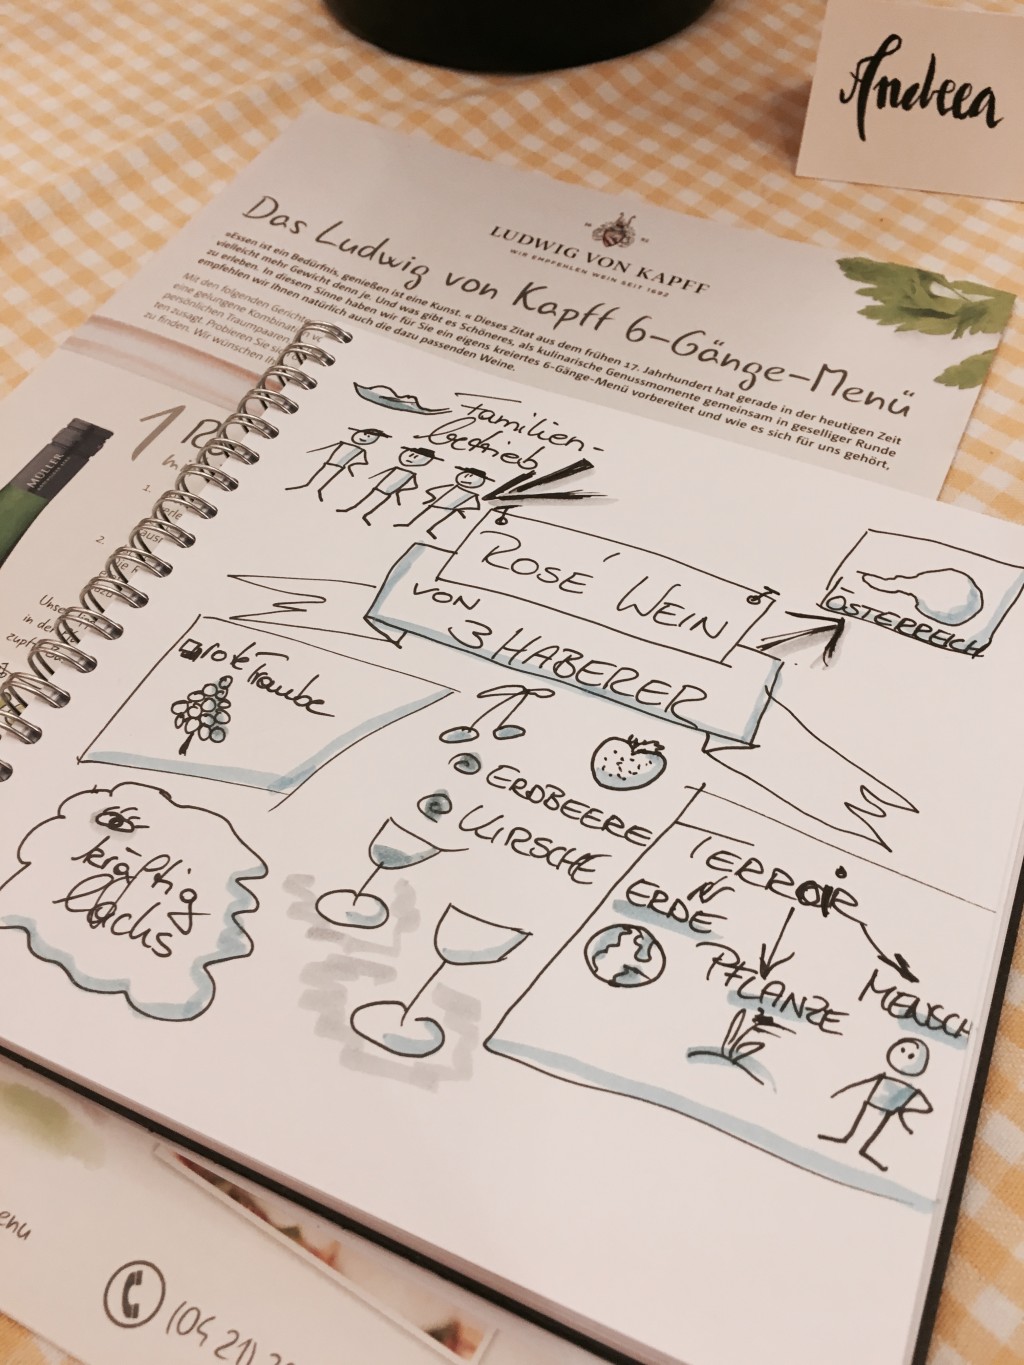 Andrea
LUDWIG VON KAPFF
WIR EMPFEHLEN WEIN SEIT 1692
Das Ludwig von Kapff 6-Gänge-Menü
»Essen ist ein Bedürfnis, genießen ist eine Kunst.« Dieses Zitat aus dem frühen 17. Jahrhundert hat gerade in der heutigen Zeit
vielleicht mehr Gewicht denn je. Und was gibt es Schöneres, als kulinarische Genussmomente gemeinsam in geselliger Runde
zu erleben. In diesem Sinne haben wir für Sie ein eigens kreiertes 6-Gänge-Menü vorbereitet und wie es sich für uns gehört,
empfehlen wir Ihnen natürlich auch die dazu passenden Weine.
Mit den folgenden Gerichte
eine gelungene Kombinat
persönlichen Traumpaaren
ten zusagt. Probieren Sie
zu finden. Wir wünschen
1
MÜLLER
1.
2.
Familien-
betrieb
ROSE' WEIN
VON
3 HABERER
ÖSTERREICH
rote Traube
ERDBEERE
KIRSCHE
kräftig
Lachs
TERROIR
ERDE
PFLANZE
MENSCH
enu
(04 21)